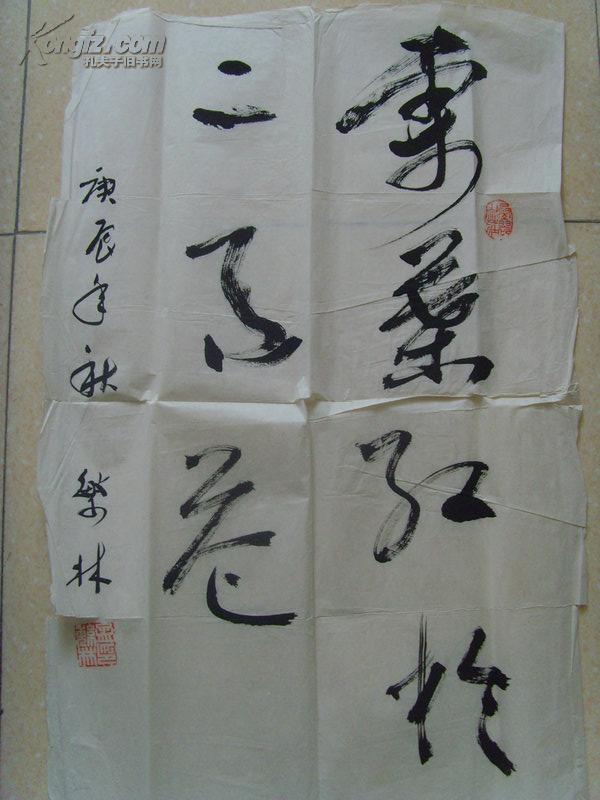 霜葉红於
二月花
庚辰年秋 繁林
Kongfz.com
孔夫子旧书网